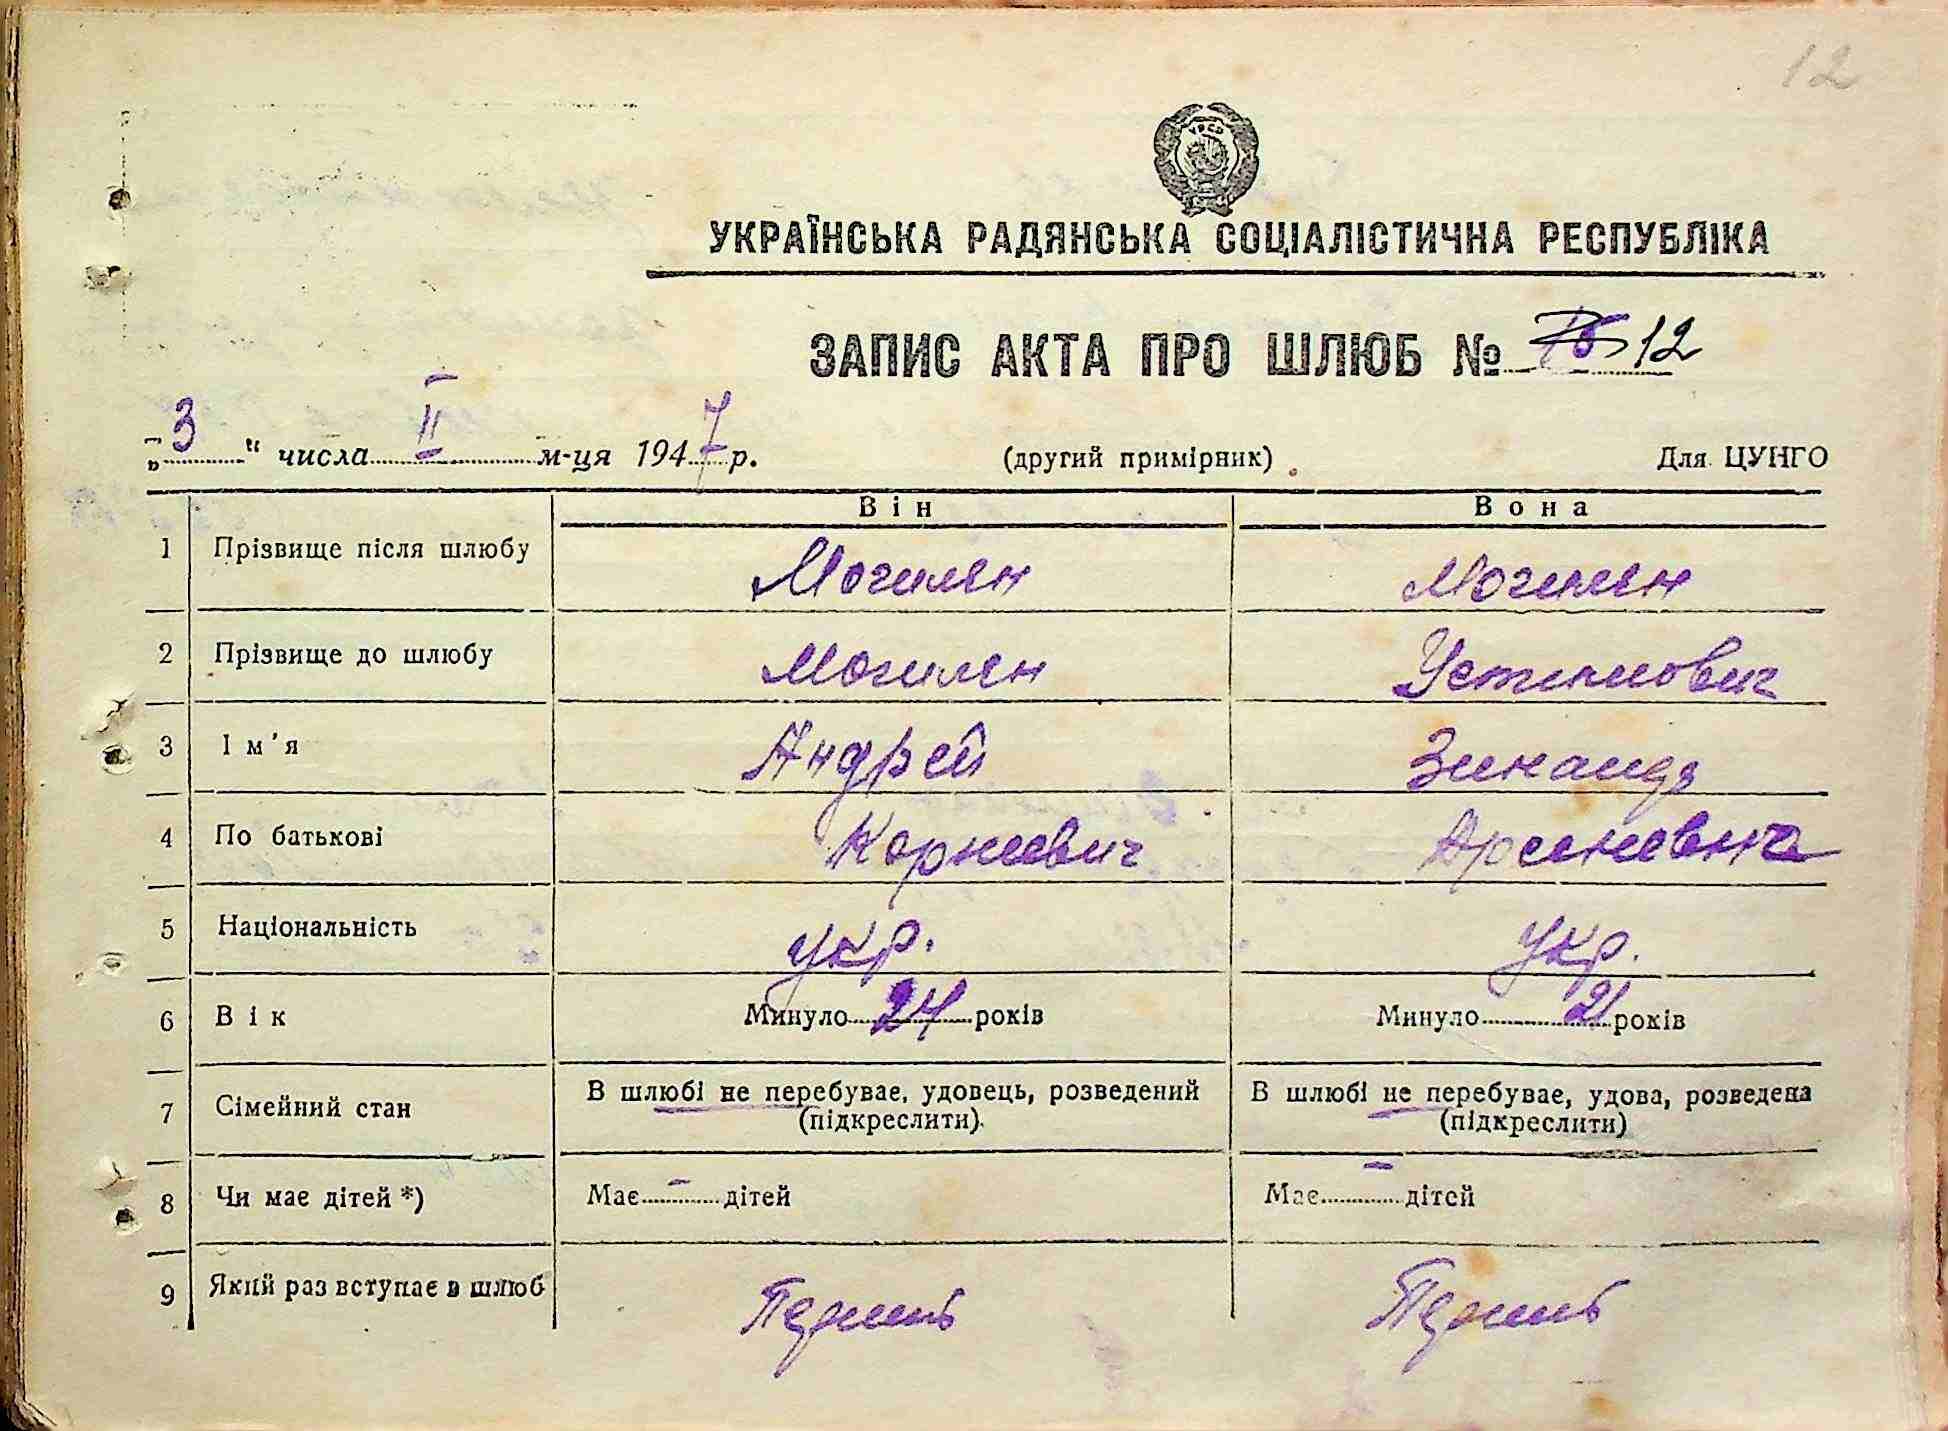 12
УРСР
УКРАЇНСЬКА РАДЯНСЬКА СОЦІАЛІСТИЧНА РЕСПУБЛІКА
ЗАПИС АКТА ПРО ШЛЮБ № 12
„3“ числа II м-ця 1947 р. (другий примірник) Для ЦУНГО
Він Вона
1 Прізвище після шлюбу Могилен Могилен
2 Прізвище до шлюбу Могилен Устимович
3 Ім'я Андрей Зинаида
4 По батькові Корнеевич Арсеневна
5 Національність укр. Укр.
6 Вік Минуло 24 років Минуло 21 років
7 Сімейний стан В шлюбі не перебуває, удовець, розведений В шлюбі не перебуває, удова, розведена
(підкреслити) (підкреслити)
8 Чи має дітей *) Має - дітей Має - дітей
9 Який раз вступає в шлюб